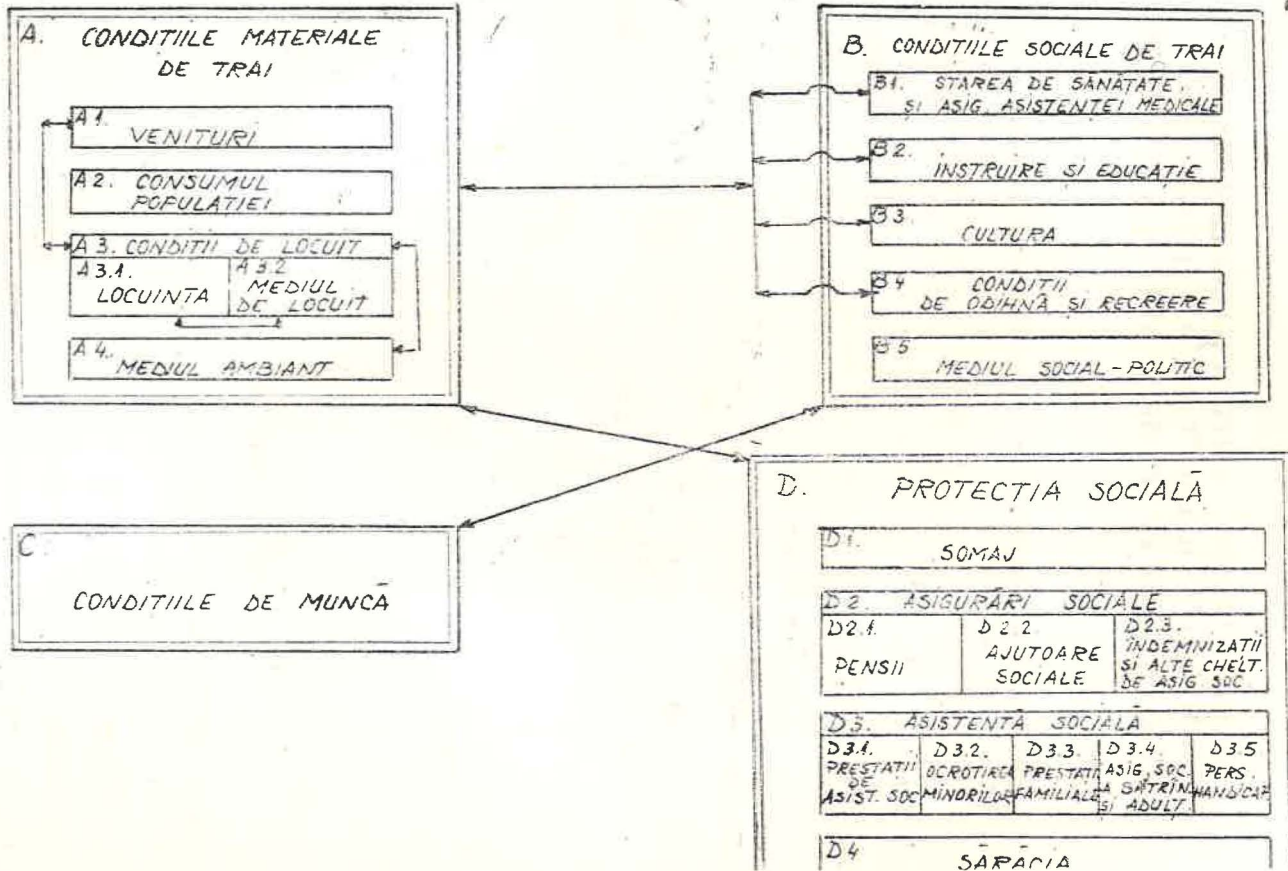 A. CONDITIILE MATERIALE
DE TRAI
A1.
VENITURI
A2. CONSUMUL
POPULATIEI
A3. CONDITII DE LOCUIT
A3.1.
LOCUINTA
A3.2
MEDIUL
DE LOCUIT
A4.
MEDIUL AMBIANT
B. CONDITIILE SOCIALE DE TRAI
B1. STAREA DE SĂNĂTATE
SI ASIG. ASISTENTEI MEDICALE
B2.
INSTRUIRE SI EDUCATIE
B3
CULTURA
B4 CONDITII
DE ODIHNĂ SI RECREERE
B5
MEDIUL SOCIAL-POLITIC
C
CONDITIILE DE MUNCĂ
D. PROTECTIA SOCIALĂ
D1.
SOMAJ
D2. ASIGURĂRI SOCIALE
D2.1.
PENSII
D2.2.
AJUTOARE
SOCIALE
D2.3.
INDEMNIZATII
SI ALTE CHELT.
DE ASIG SOC
D3. ASISTENTĂ SOCIALĂ
D3.1.
PRESTATII
DE
ASIST. SOC
D3.2.
OCROTIREA
MINORILOR
D3.3.
PRESTATII
FAMILIALE
D3.4.
ASIG. SOC.
A BĂTRÎN
SI ADULT.
D3.5
PERS.
HANDICAP
D4
SĂRĂCIA